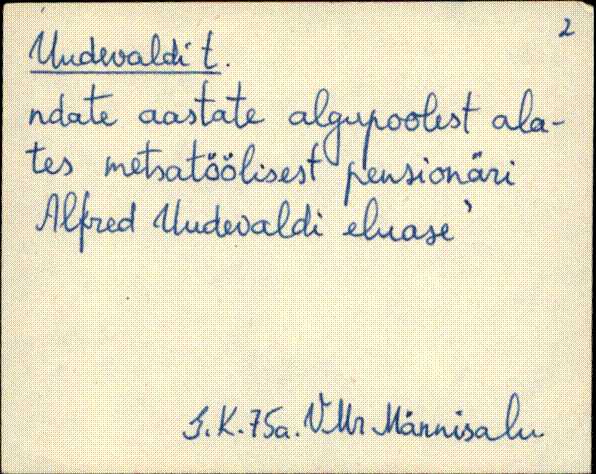 2
Uudevaldi t.
ndate aastate algupoolest ala-
tes metsatöölisest pensionäri
Alfred Uudevaldi eluase'
J.K. 75a. V.Mr Männisalu